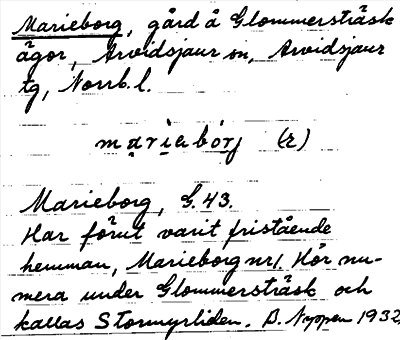 Marieborg, gård å Glommersträsk
ägor, Arvidsjaur sn, Arvidsjaur
tg, Norrb. l.
mariabórj (r)
Marieborg, G. 43.
Har förut varit fristående
hemman, Marieborg nr 1. Hör nu-
mera under Glommersträsk och
kallas Stormyrliden. B. Nyppen 1932.